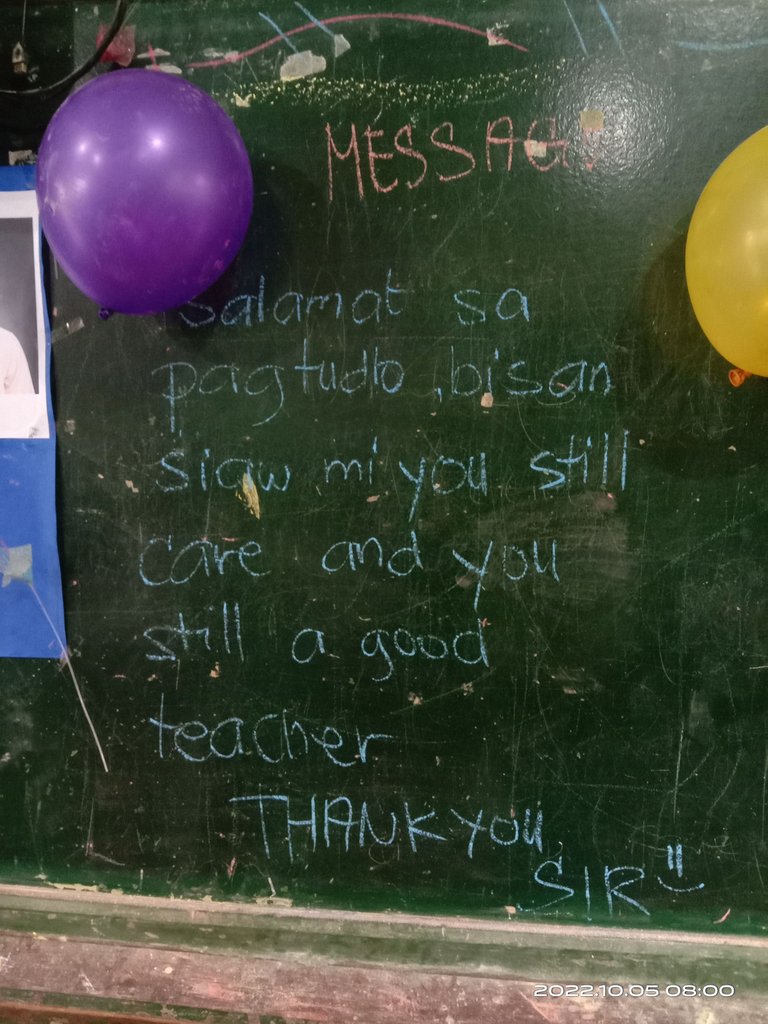 MESSAGE!
salamat sa
pagtudlo, bisan
siaw mi you still
care and you
still a good
teacher
THANK YOU
SIR
2022.10.05 08:00